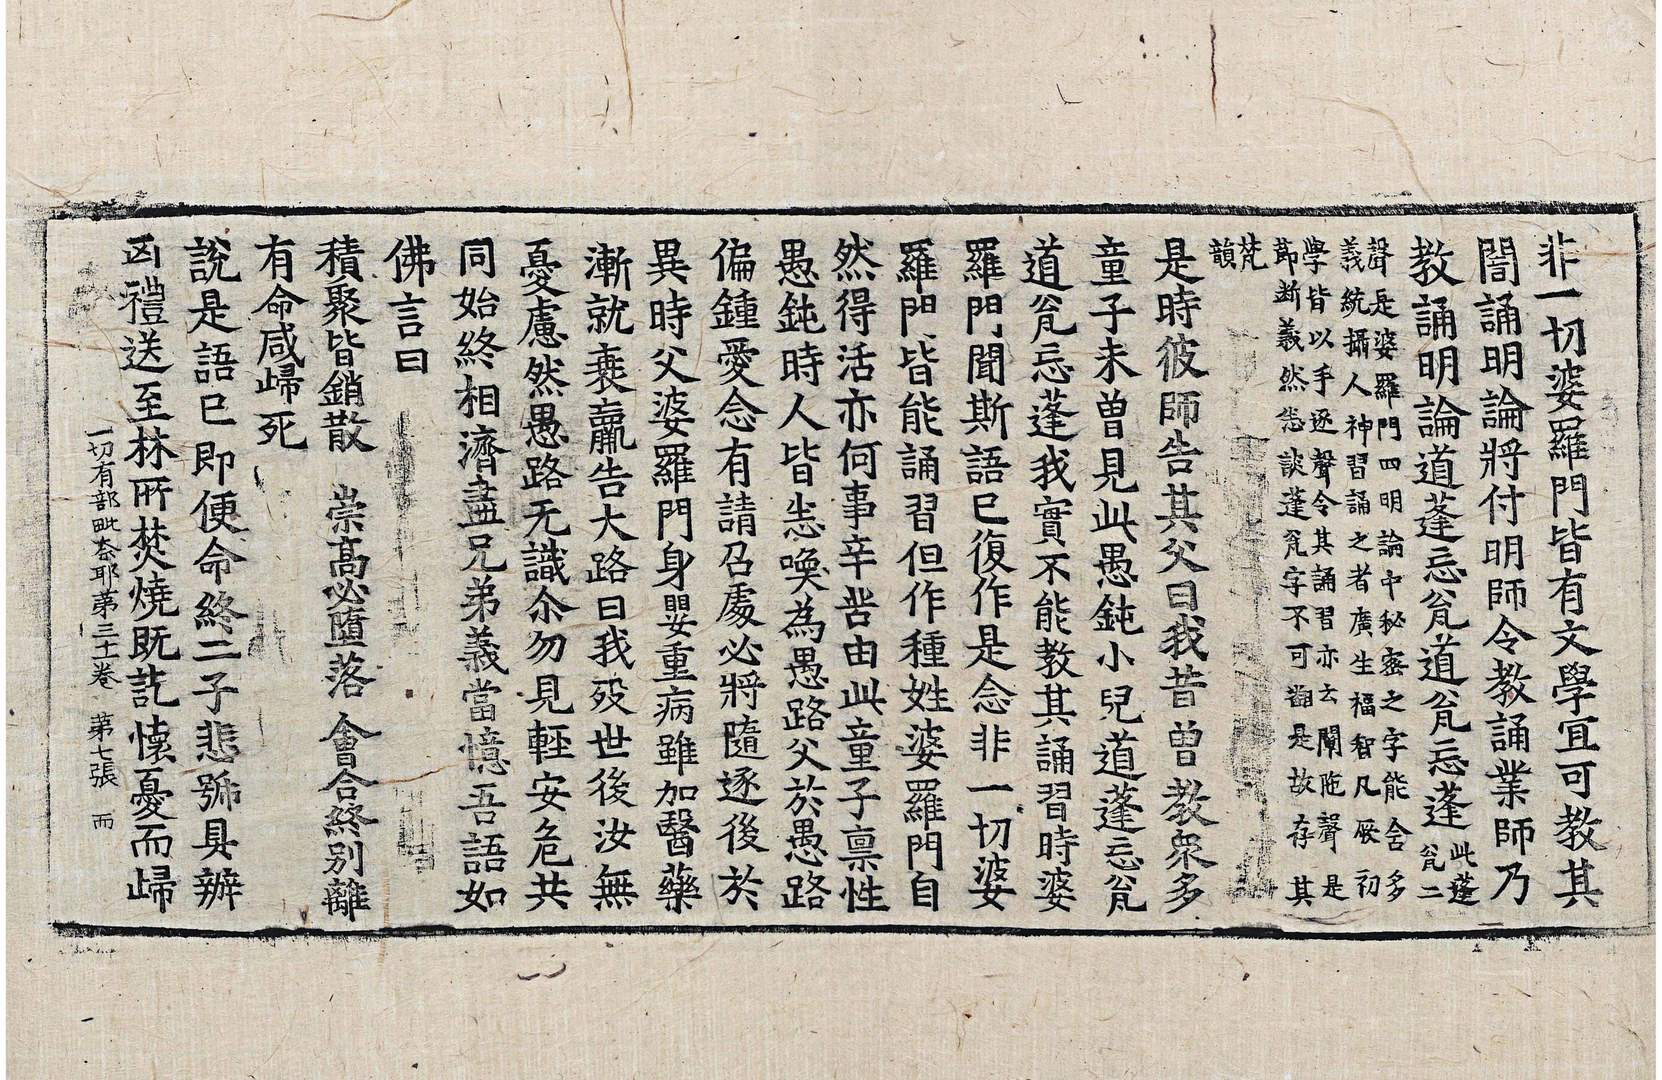 非一切婆羅門皆有文學宜可教其
闇誦明論將付明師令教誦業師乃
教誦明論道蓬忘瓮道瓮忘蓬此蓬
瓮二
聲是婆羅門四明論中秘密之字能含多
義統攝人神習誦之者廣生福智凡厥初
學皆以手逐聲令其誦習亦云闡陁聲是
節断義然悉談蓬瓮字不可翻是故存其
梵
韻
是時彼師告其父曰我昔曾教衆多
童子未曾見此愚鈍小兒道蓬忘瓮
道瓮忘蓬我實不能教其誦習時婆
羅門聞斯語已復作是念非一切婆
羅門皆能誦習但作種姓婆羅門自
然得活亦何事辛苦由此童子稟性
愚鈍時人皆悉喚為愚路父於愚路
偏鍾愛念有請召處必將隨逐後於
異時父婆羅門身嬰重病雖加醫藥
漸就衰羸告大路曰我歿世後汝無
憂慮然愚路无識尒勿見輕安危共
同始終相濟盡兄弟義當憶吾語如
佛言曰
積聚皆銷散 崇高必墮落 會合終別離
有命咸歸死
說是語已即便命終二子悲號具辦
凶禮送至林所焚燒既訖懷憂而歸
一切有部毗奈耶第三十一卷 第七張 而